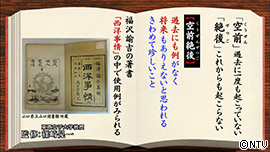 くうぜん
「空前」過去に一度も起こっていない
ぜつご
「絶後」これからも起こらない
くうぜんぜつご
【空前絶後】
過去にも例がなく
将来もありえないと思われる
きわめて珍しいこと
福沢諭吉の著書
「西洋事情」の中で使用例がみられる
西洋事情
©NTV